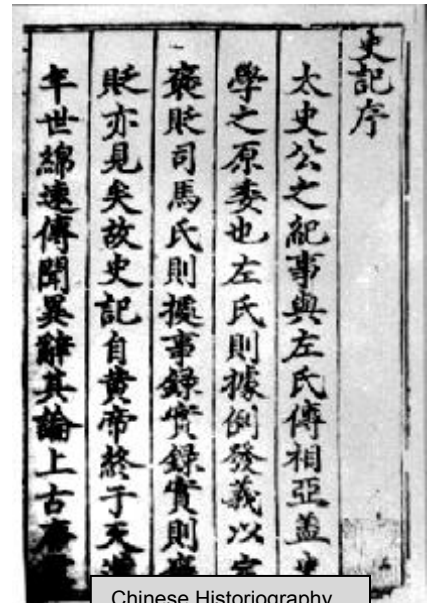 史記序
太史公之紀事與左氏傳相亞蓋史
學之原委也左氏則據例發義以定
褒貶司馬氏則摭事錄實錄實則褒
貶亦見矣故史記自黄帝終于天漢
年世綿遠傳聞異辭其論上古唐
Chinese Historiography